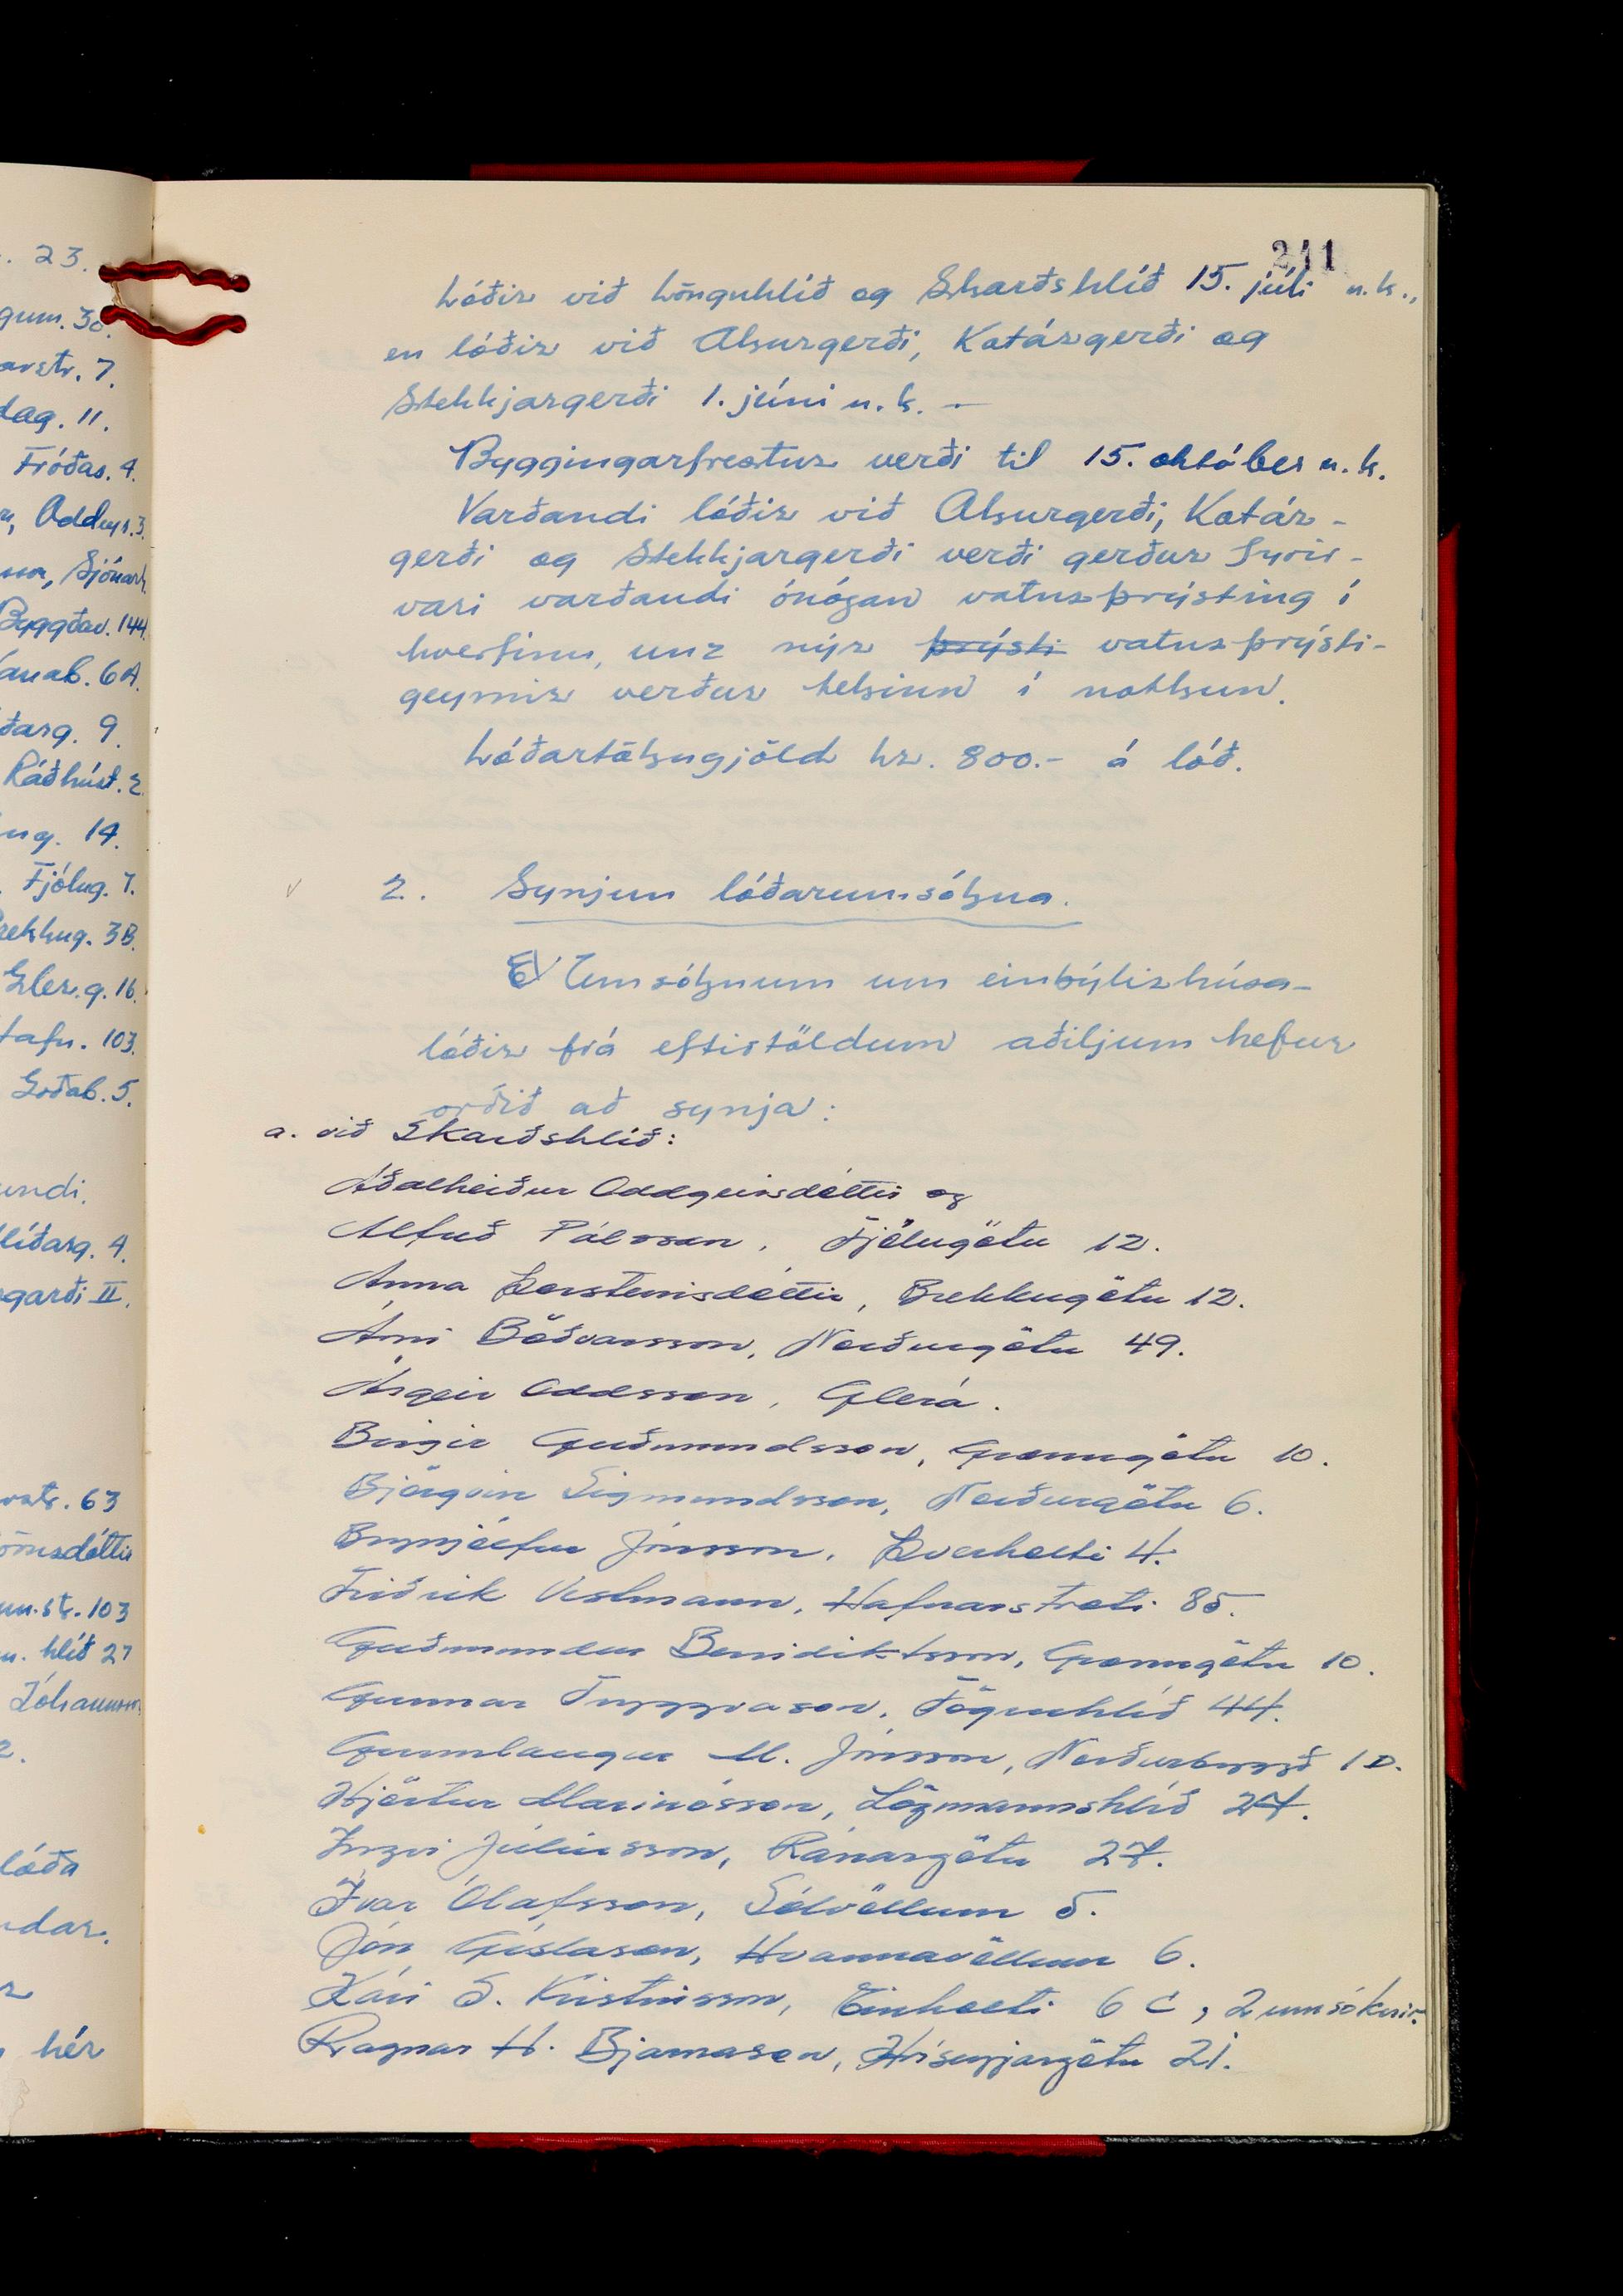 . 23.
gum. 30.
arstr. 7.
dag. 11.
Fróðas. 4.
Oddeyr. 3.
Sjónarh.
Byggðav. 144.
anab. 6A.
ðarg. 9.
Ráðhúst. 2.
ug. 14.
Fjólug. 7.
rekkug. 3B.
Gler.g. 16.
tafn. 103.
Goðab. 5.
undi.
líðarg. 4.
garði II.
rstr. 63
örnsdóttir
un.str. 103
u. hlíð 27
Jóhannss.
2.
lóða
dar.
hér
241
Lóðir við Lönguhlíð og Skarðshlíð 15. júlí n.k.,
en lóðir við Akurgerði, Kotárgerði og
Stekkjargerði 1. júní n.k. –
Byggingarfrestur verði til 15. október n.k.
Varðandi lóðir við Akurgerði, Kotár-
gerði og Stekkjargerði verði gerður fyrir-
vari varðandi ónógan vatnsþrýsting í
hverfinu, unz nýr þrýsti vatnsþrýsti-
geymir verður tekinn í notkun.
Lóðartökugjöld kr. 800.- á lóð.
2. Synjun lóðarumsókna.
Umsóknum um einbýlishúsa-
lóðir frá eftirtöldum aðiljum hefur
orðið að synja:
a. við Skarðshlíð:
Aðalheiður Oddgeirsdóttir og
Alfreð Pálsson, Fjólugötu 12.
Anna Þorsteinsdóttir, Brekkugötu 12.
Árni Böðvarsson, Norðurgötu 49.
Ásgeir Oddsson, Glerá.
Birgir Guðmundsson, Grænugötu 10.
Björgvin Sigmundsson, Norðurgötu 6.
Brynjólfur Jónsson, Þverholti 4.
Friðrik Vestmann, Hafnarstræti 85.
Guðmundur Benediktsson, Grænugötu 10.
Gunnar Tryggvason, Fögruhlíð 44.
Gunnlaugur M. Jónsson, Norðurbyggð 1D.
Hjörtur Marinósson, Lögmannshlíð 27.
Ingvi Júlíusson, Ránargötu 27.
Ívar Ólafsson, Sólvöllum 5.
Jón Gíslason, Hvannavöllum 6.
Kári S. Kristinsson, Einholti 6 C, 2 umsóknir.
Ragnar H. Bjarnason, Hríseyjargötu 21.